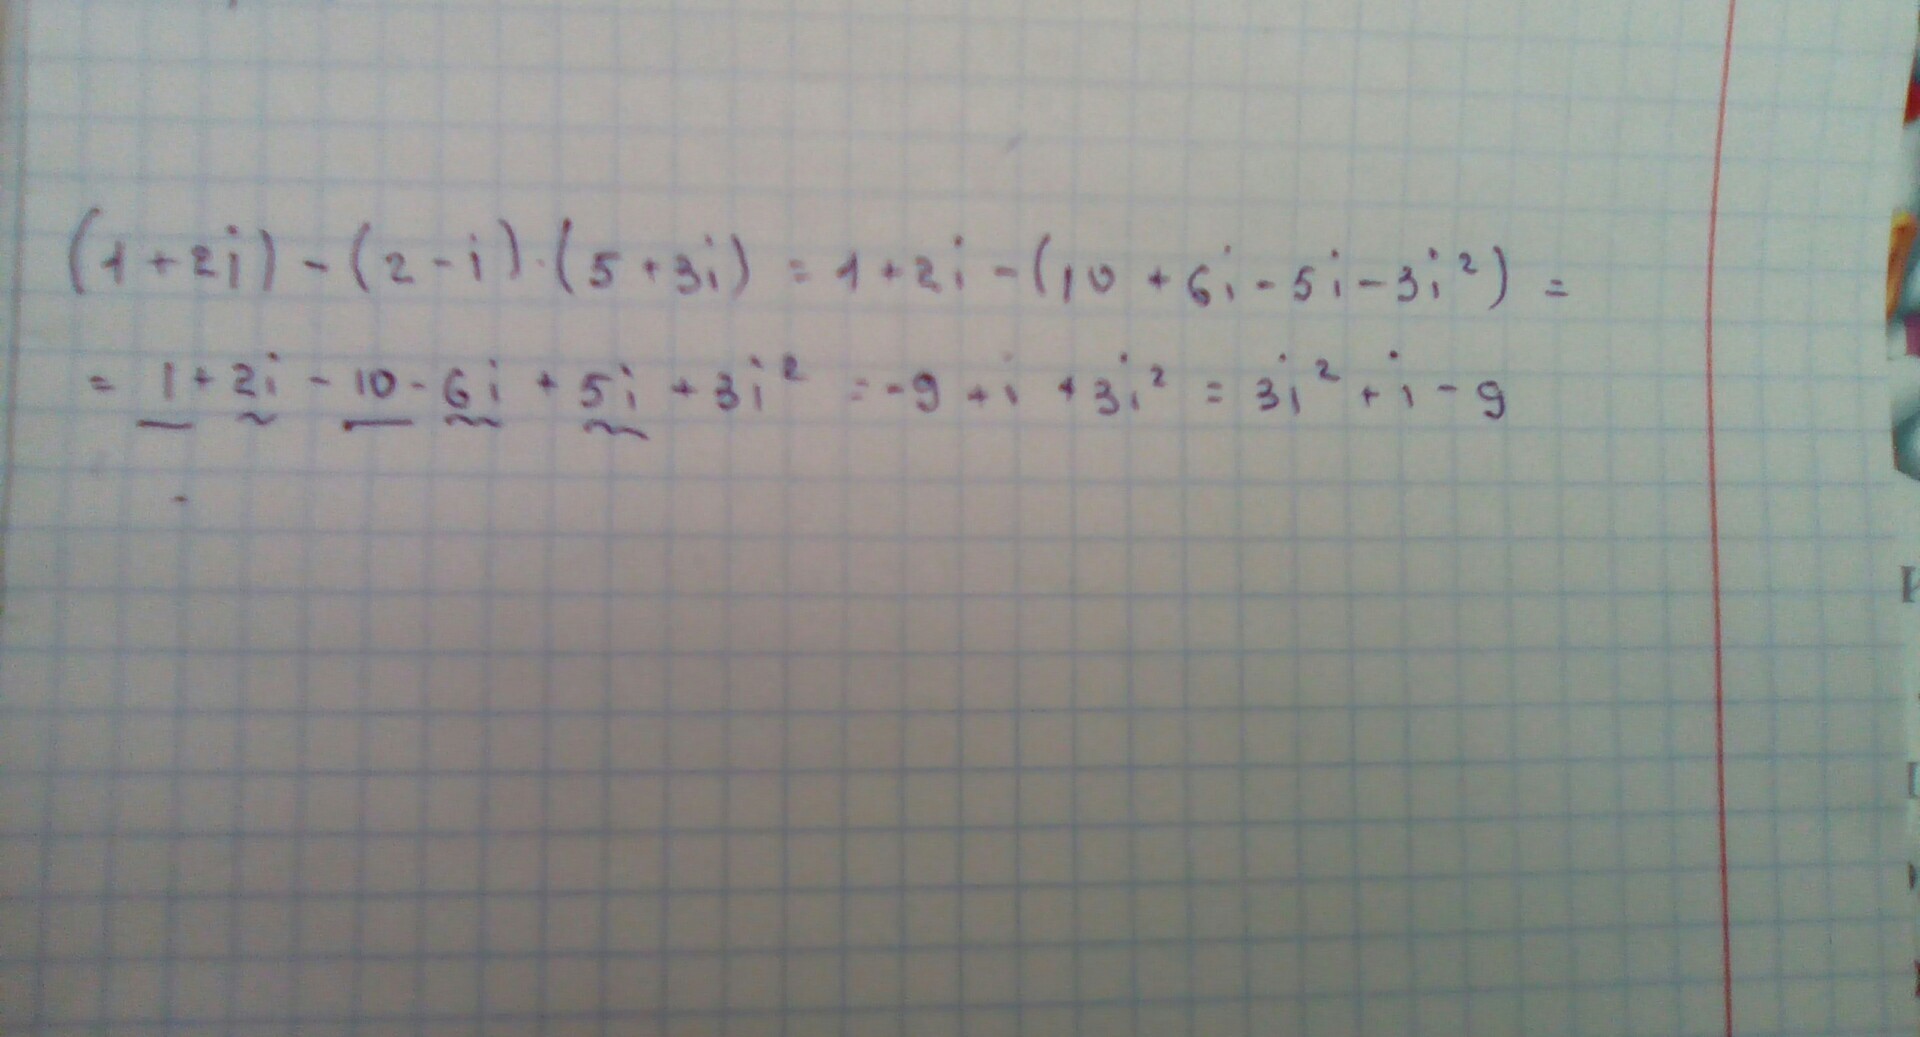 (1+2i)-(2-i)·(5+3i)=1+2i-(10+6i-5i-3i²)=
=1+2i-10-6i+5i+3i²=-9+i+3i²=3i²+i-9